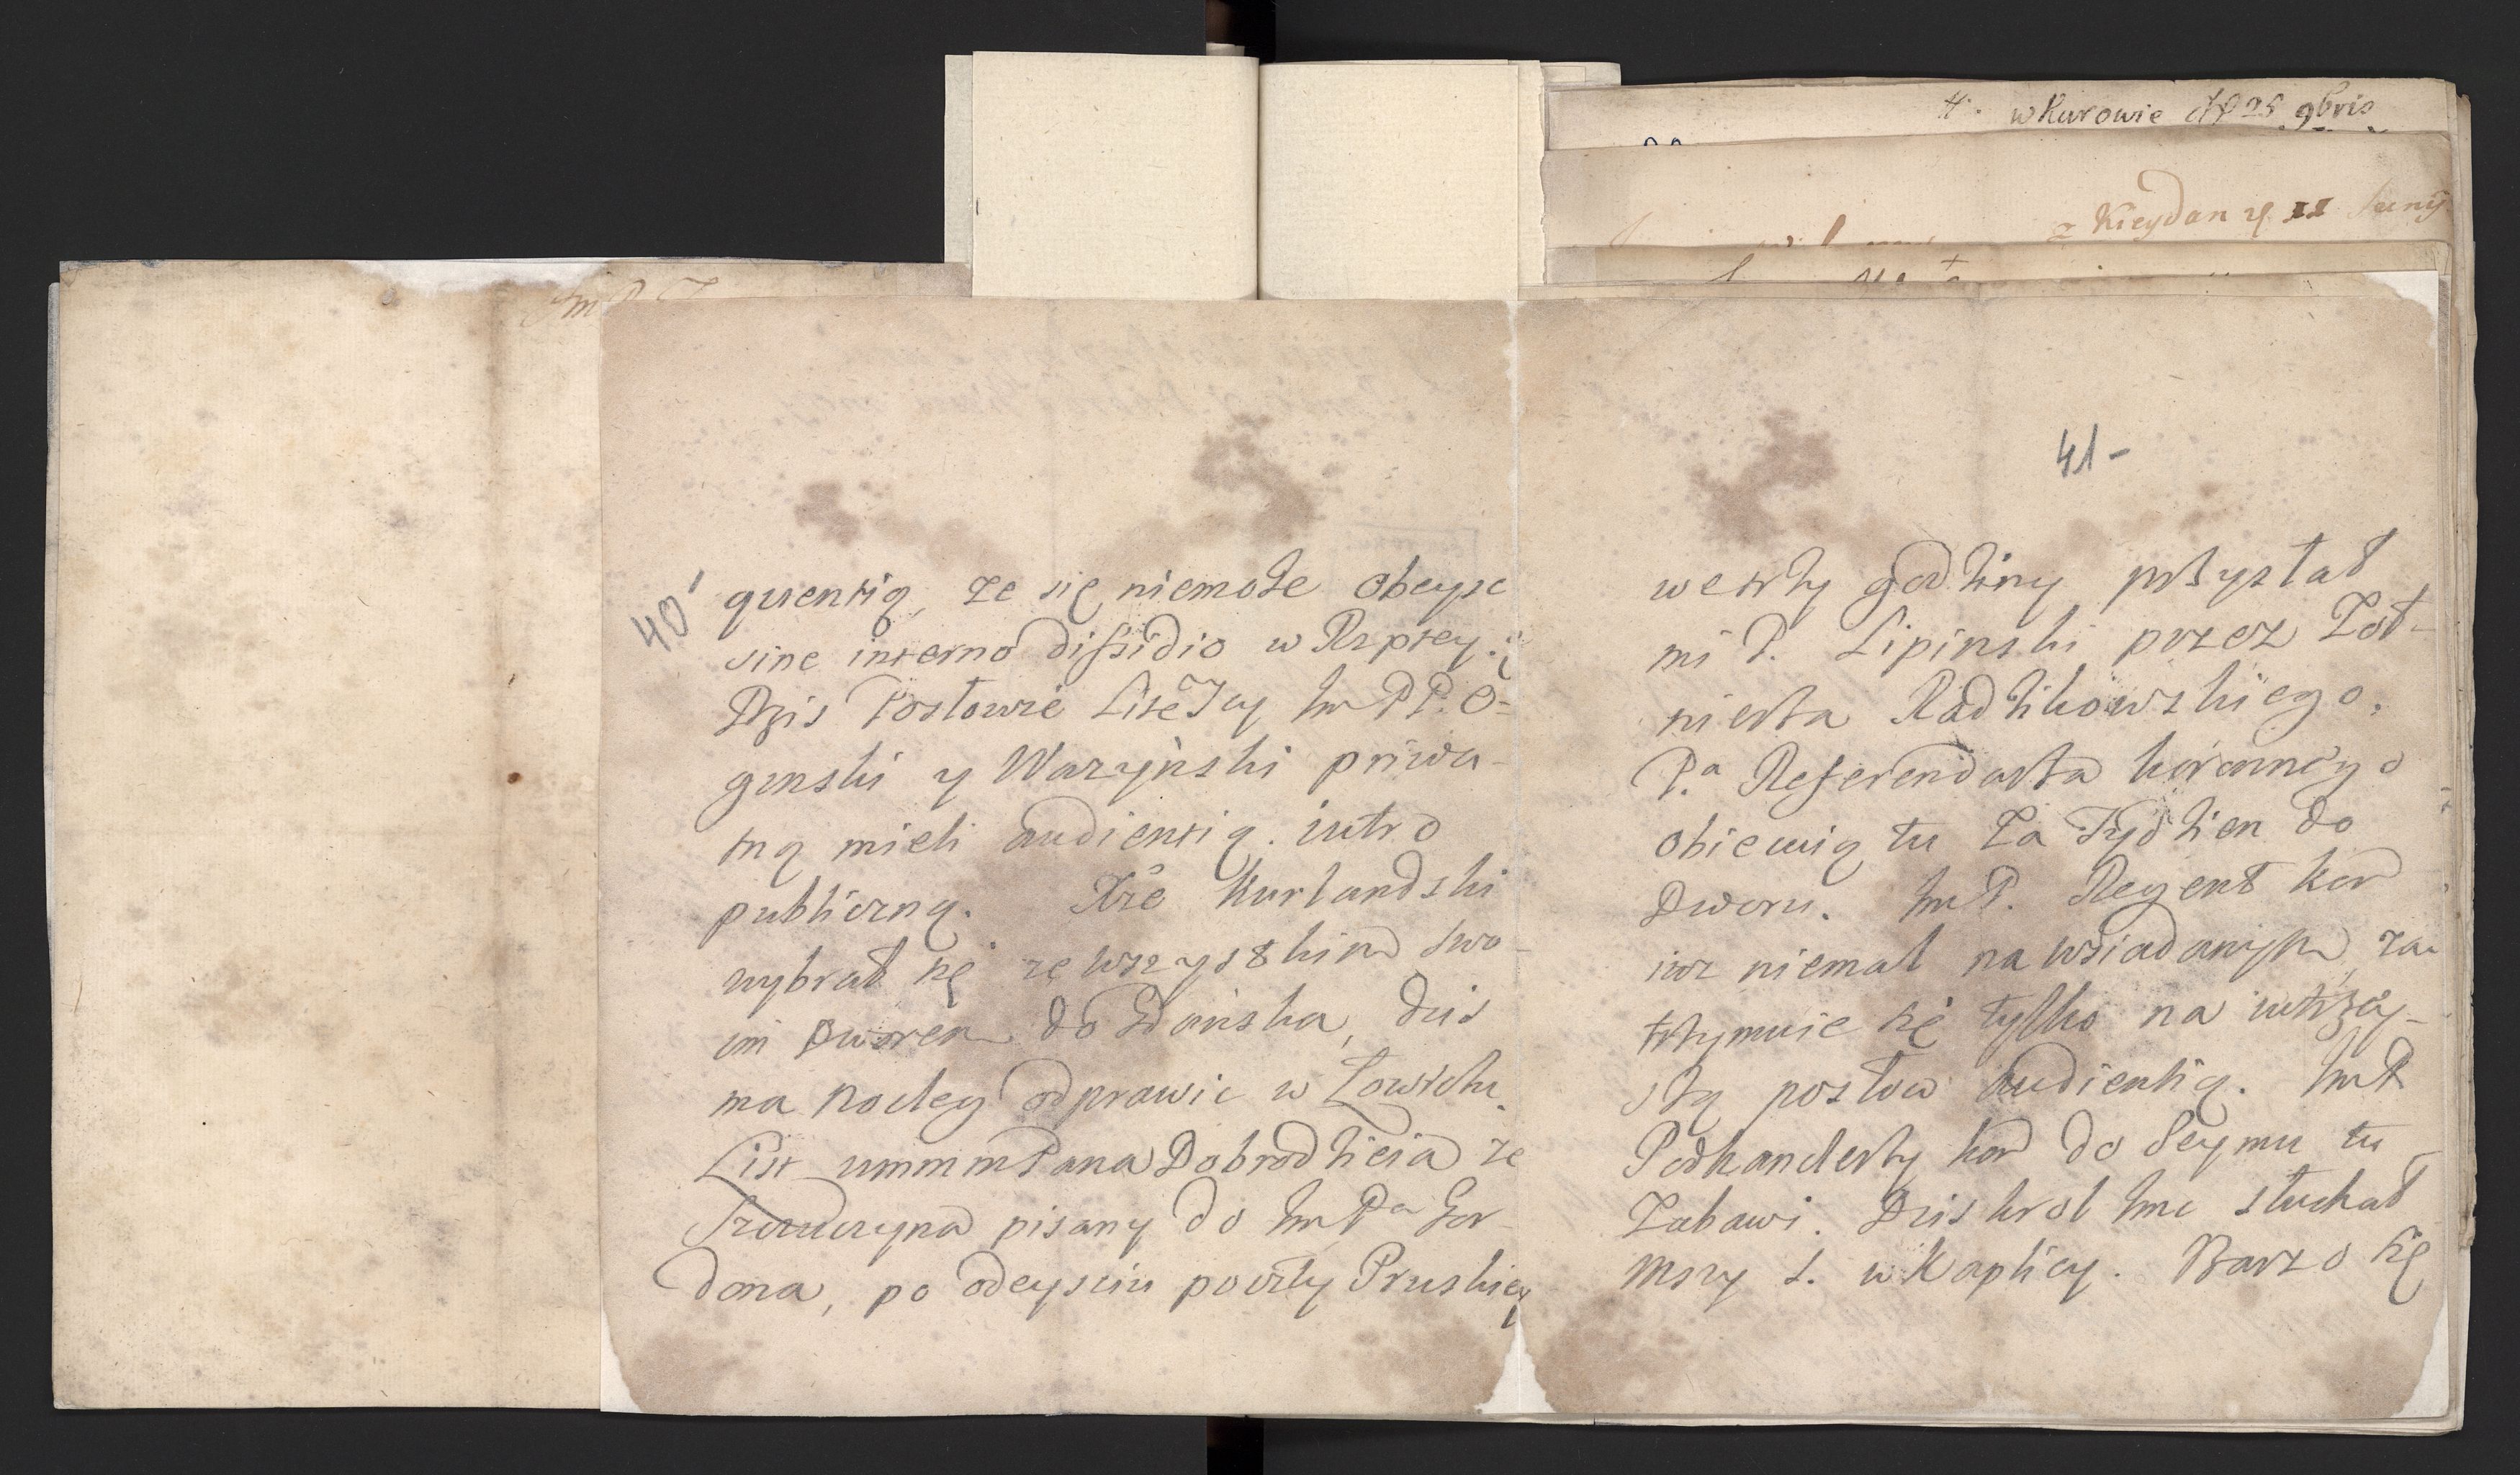 4. w Kurowie d 25 9bris
z Kieydan 11 Junij
40
quentią, ze się niemoże obeysc
sine interno dissidio w Rzptey.
Dzis Posłowie Imć PP. O=
ginski y Wazynski priwa-
tną mieli audientią. iutro
publiczną. Xże Kurlandski
wybrał się ze wszystkim swo-
im Dworem do Gdańska, dzis
ma nocleg odprawic w Łowiczu.
List ummmPana Dobrodzieia ze
pisany do ImPa Gor-
dona, po odeysciu poczty Pruskiey
41-
weszty godziny przysłał
mi P. Lipinski przez Żoł-
nierza Radzikowskiego.
Pa Referendarza koronnego
obiecuią tu za Tydzien do
Dworu. ImP. Regent kor
iuz niemal na wsiadanym, za-
trzymuie się tylko na iutrzey-
szą posłow audientią. ImP
Podkanclerzy kor do Seymu tu
Zabawi. Dzis krol Imc słuchał
Mszy S. w Kaplicy. Barzo się